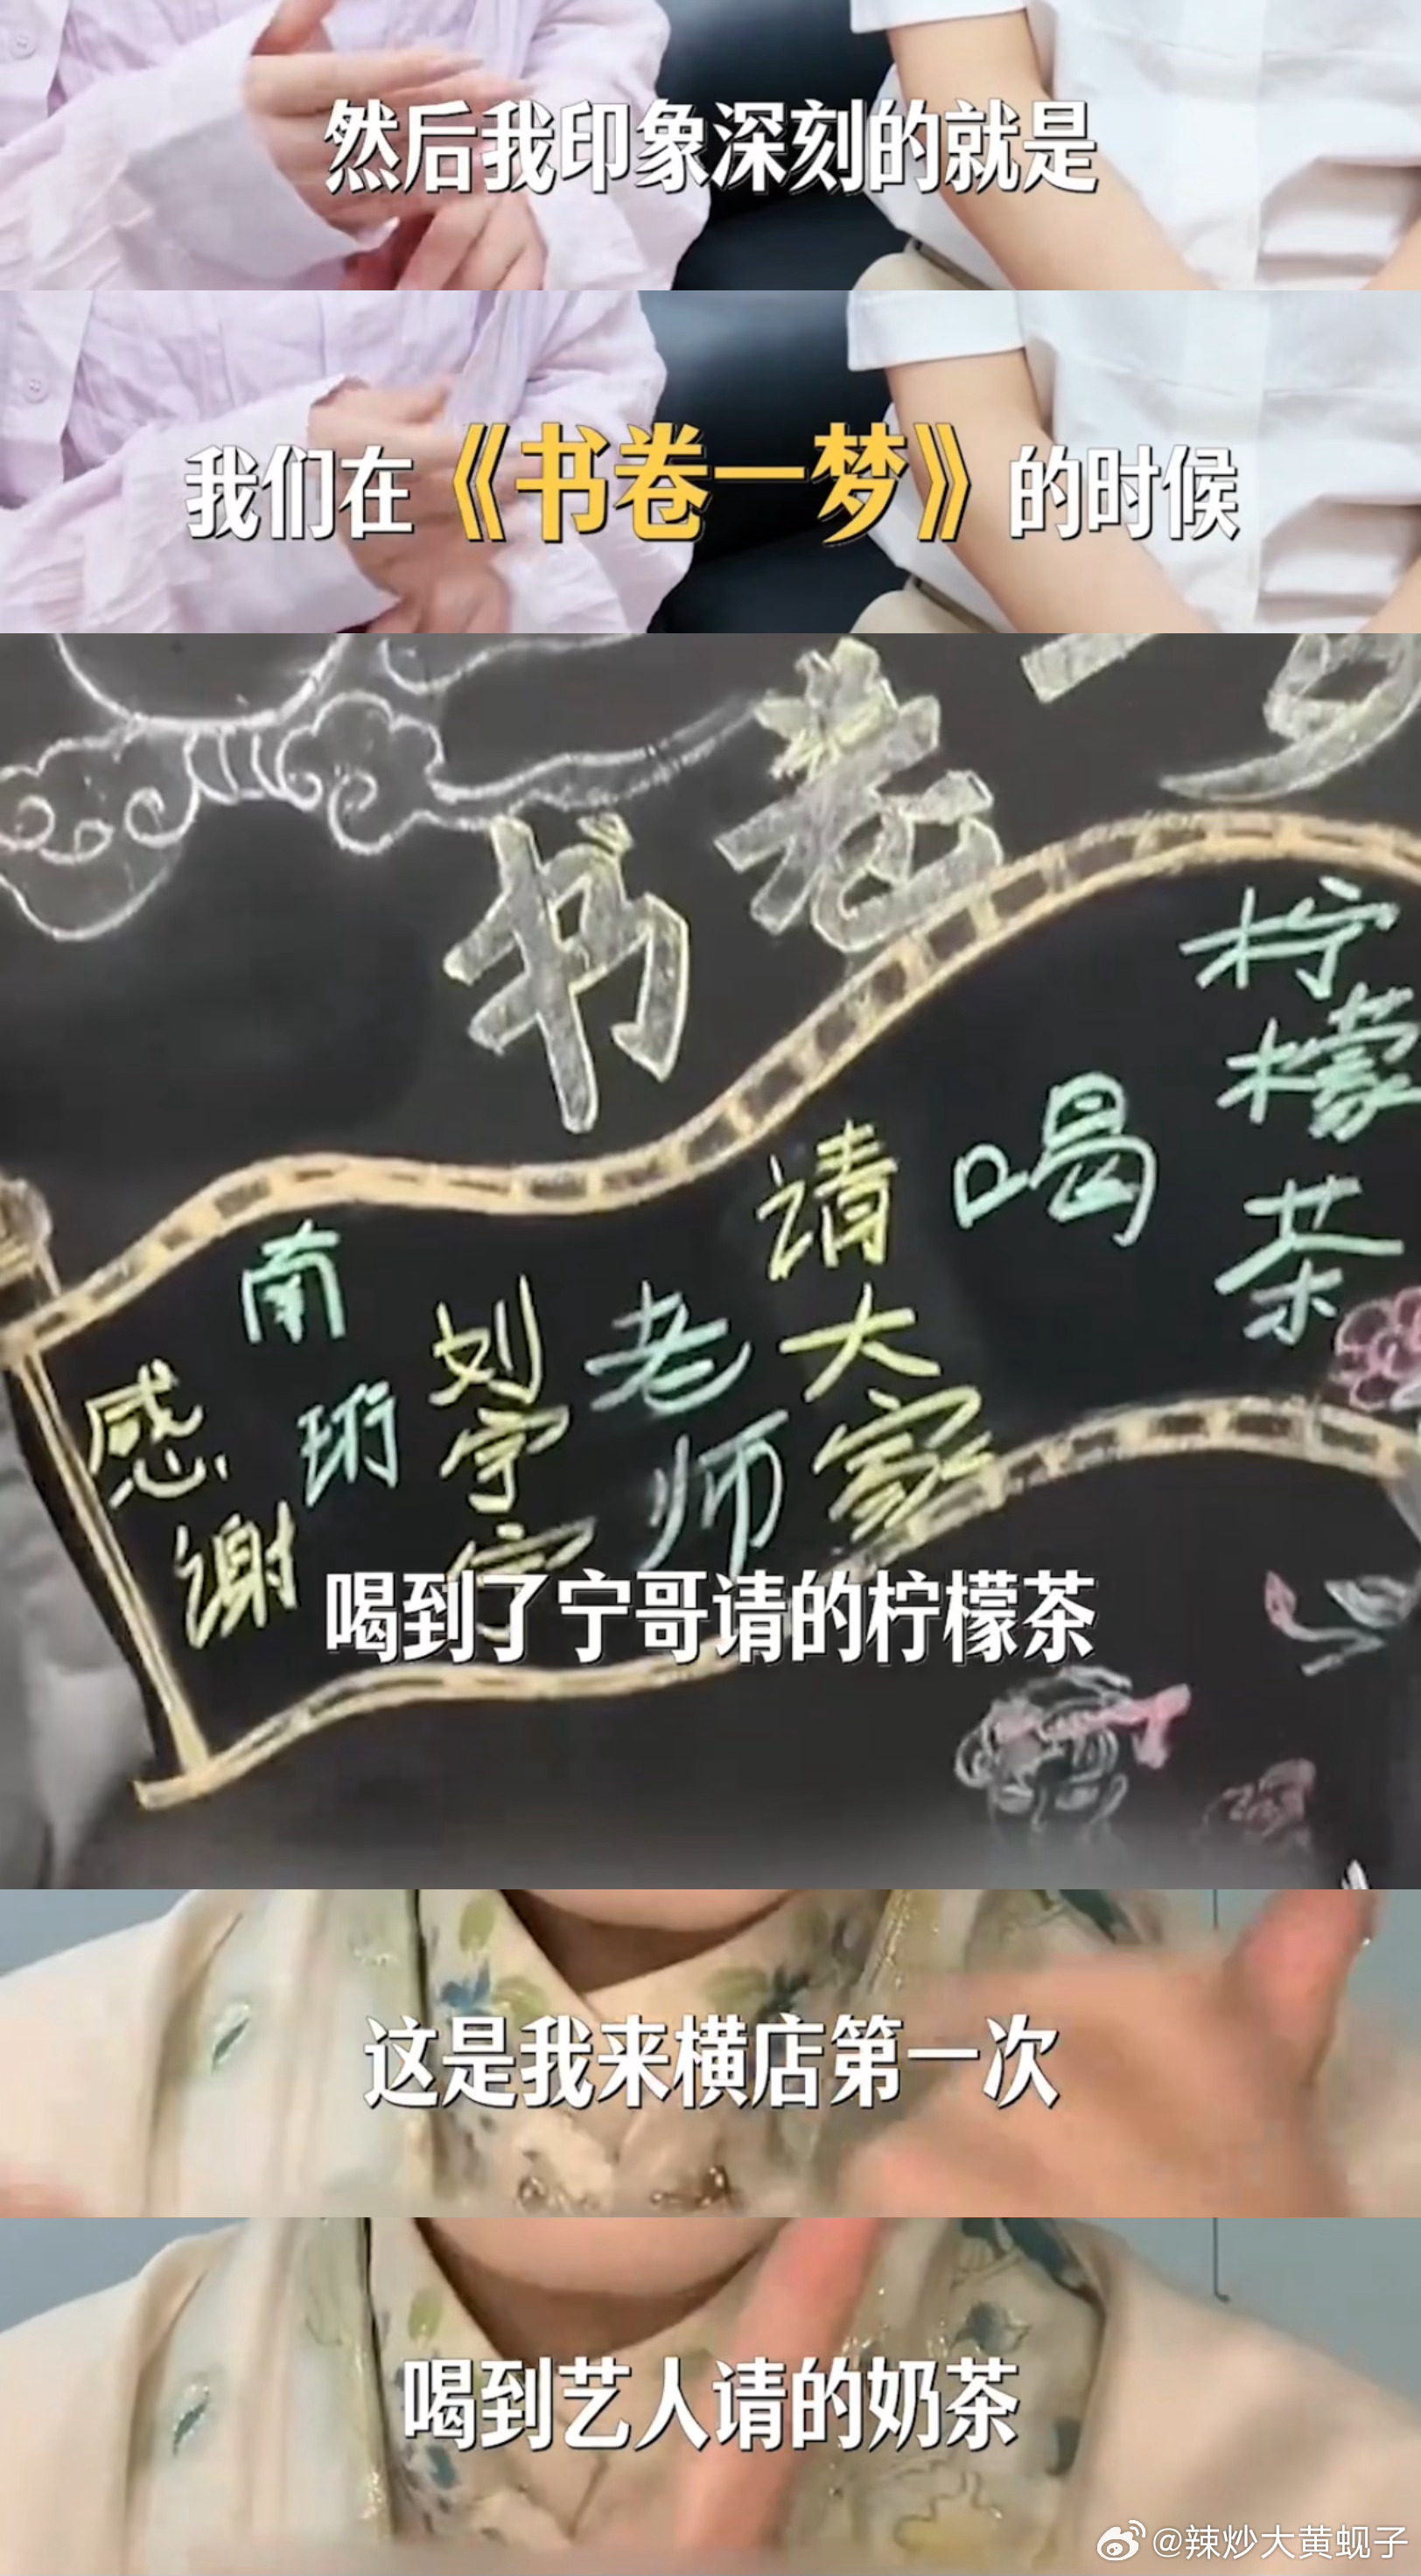 然后我印象深刻的就是
我们在《书卷一梦》的时候
书卷一
感谢
南珩
刘宇宁
老师
请大家
喝
柠檬茶
喝到了宁哥请的柠檬茶
这是我来横店第一次
喝到艺人请的奶茶
@辣炒大黄蚬子